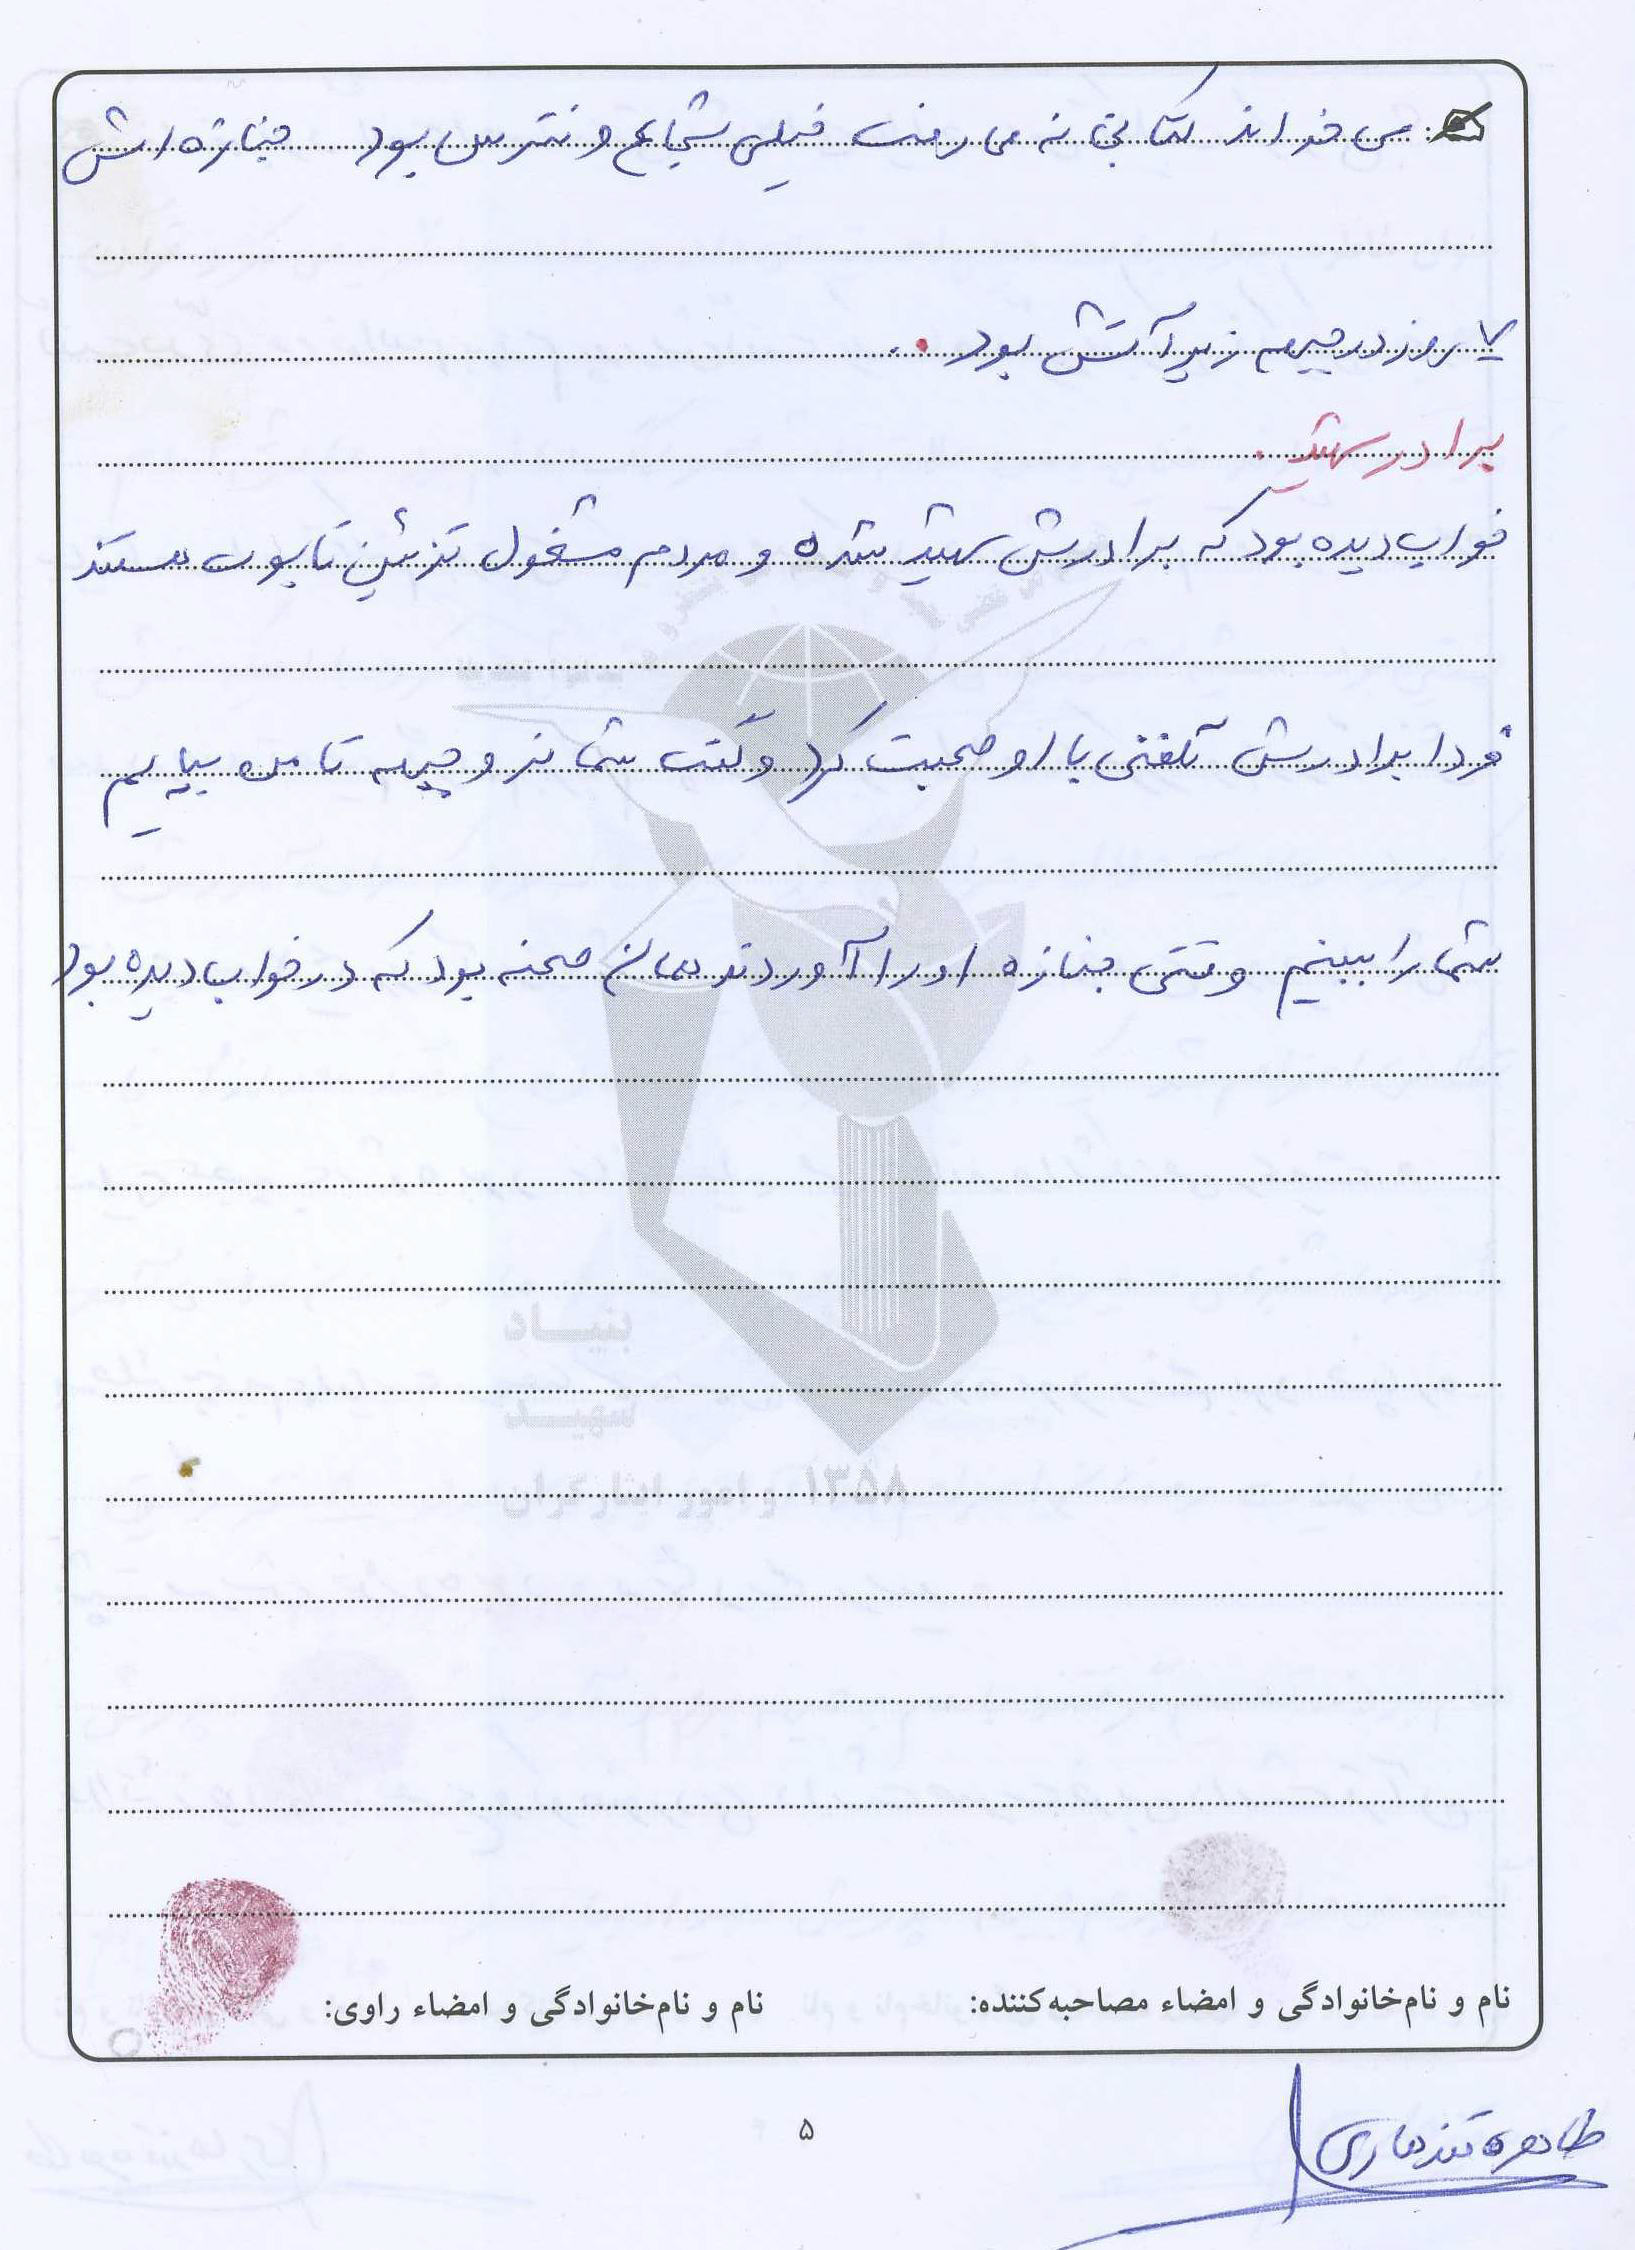 می خواند کتابخانه می رفت خیلی شجاع و نترس بود جنازه اش
۷ روز در جبهه زیر آتش بود.
برادر شهید.
خواب دیده بود که برادرش شهید شده و مردم مشغول تزئین تابوت هستند
فردا برادرش تلفنی با او صحبت کرد و گفت شما نرو جبهه تا من بیایم
شما را ببینم وقتی جنازه او را آوردند همان صحنه بود که در خواب دیده بود
بنیاد
شهید
و امور ایثارگران ۱۳۵۸
نام و نام‌خانوادگی و امضاء مصاحبه‌کننده: نام و نام‌خانوادگی و امضاء راوی:
طاهره قندهاری
۵